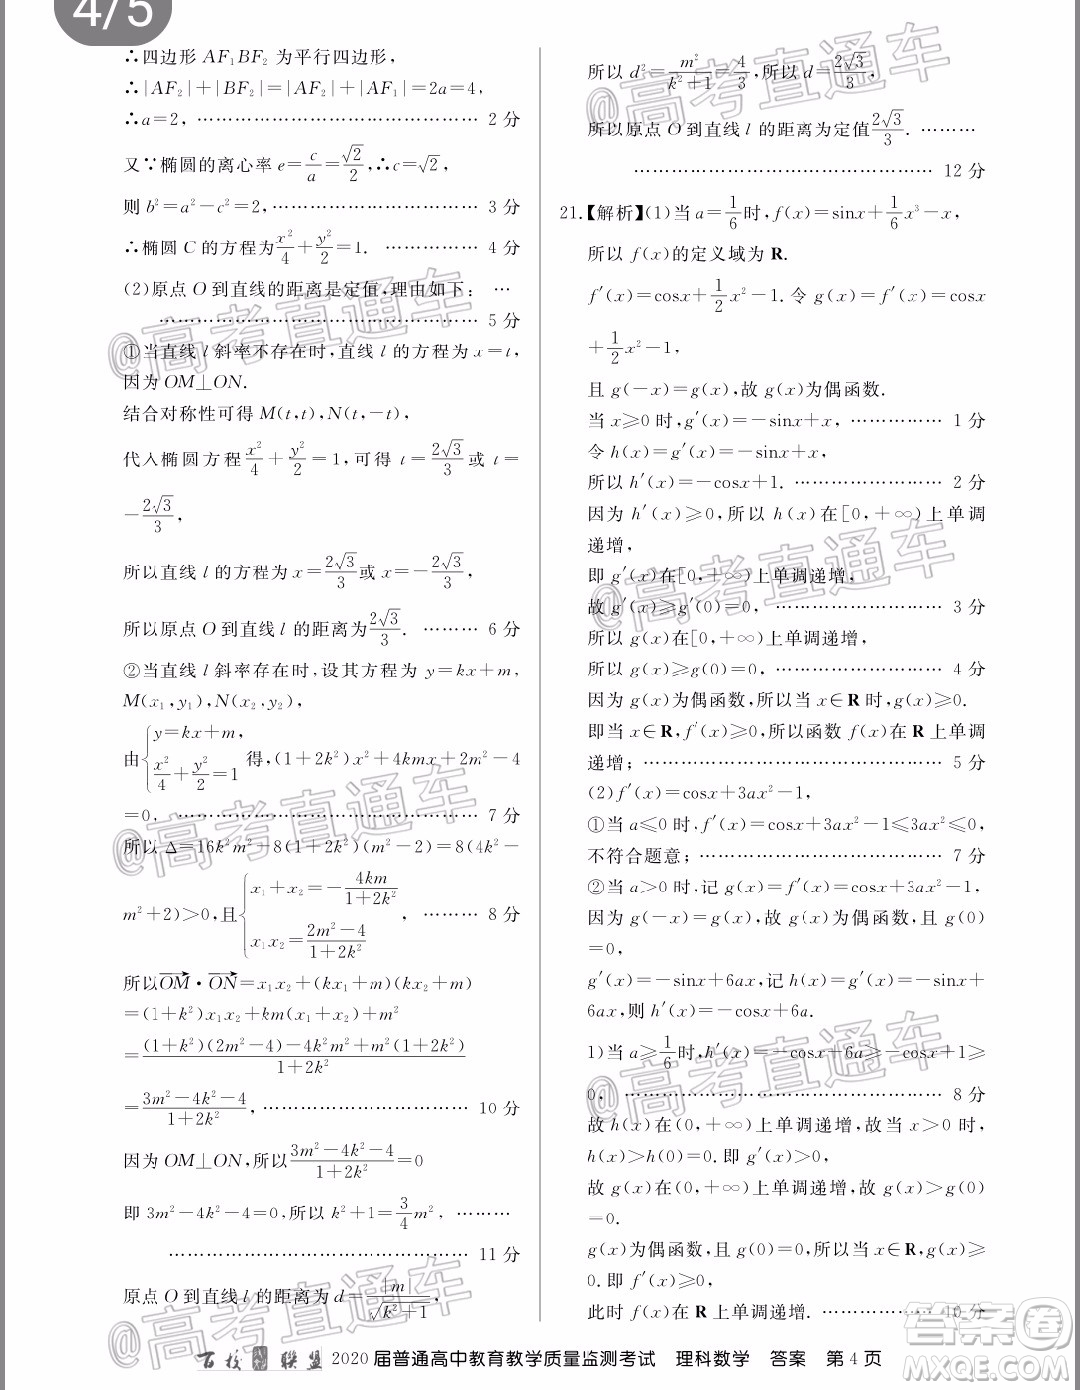 4/5
∴四边形 AF₁BF₂ 为平行四边形,
∴|AF₂|+|BF₂|=|AF₂|+|AF₁|=2a=4,
∴a=2, ………………………………………… 2 分
又∵椭圆的离心率 e=c/a=√2/2,∴c=√2,
则 b²=a²-c²=2, …………………………… 3 分
∴椭圆 C 的方程为x²/4+y²/2=1. …………… 4 分
(2)原点 O 到直线的距离是定值,理由如下: …
…………………………………………… 5 分
①当直线 l 斜率不存在时,直线 l 的方程为 x=t,
因为 OM⊥ON.
结合对称性可得 M(t,t),N(t,-t),
代入椭圆方程x²/4+y²/2=1,可得 t=2√3/3或 t=
-2√3/3,
所以直线 l 的方程为 x=2√3/3或 x=-2√3/3,
所以原点 O 到直线 l 的距离为2√3/3. ……… 6 分
②当直线 l 斜率存在时,设其方程为 y=kx+m,
M(x₁,y₁),N(x₂,y₂),
由{y=kx+m, x²/4+y²/2=1 得,(1+2k²)x²+4kmx+2m²-4
=0, ………………………………………… 7 分
所以 Δ=16k²m²-8(1+2k²)(m²-2)=8(4k²-
m²+2)>0,且{x₁+x₂=-4km/(1+2k²) x₁x₂=(2m²-4)/(1+2k²) , ……… 8 分
所以OM·ON=x₁x₂+(kx₁+m)(kx₂+m)
=(1+k²)x₁x₂+km(x₁+x₂)+m²
=((1+k²)(2m²-4)-4k²m²+m²(1+2k²))/(1+2k²)
=(3m²-4k²-4)/(1+2k²), …………………………… 10 分
因为 OM⊥ON,所以(3m²-4k²-4)/(1+2k²)=0
即 3m²-4k²-4=0,所以 k²+1=3/4m², ………
………………………………………… 11 分
原点 O 到直线 l 的距离为 d=|m|/√(k²+1),
所以 d²=m²/(k²+1)=4/3,所以 d=2√3/3,
所以原点 O 到直线 l 的距离为定值2√3/3. ………
………………………………………… 12 分
21.【解析】(1)当 a=1/6时,f(x)=sinx+1/6x³-x,
所以 f(x)的定义域为 R.
f′(x)=cosx+1/2x²-1.令 g(x)=f′(x)=cosx
+1/2x²-1,
且 g(-x)=g(x),故 g(x)为偶函数.
当 x≥0 时,g′(x)=-sinx+x, …………… 1 分
令 h(x)=g′(x)=-sinx+x,
所以 h′(x)=-cosx+1. …………………… 2 分
因为 h′(x)≥0,所以 h(x)在[0,+∞)上单调
递增,
即 g′(x)在[0,+∞)上单调递增,
故 g′(x)≥g′(0)=0, ……………………… 3 分
所以 g(x)在[0,+∞)上单调递增,
所以 g(x)≥g(0)=0. ……………………… 4 分
因为 g(x)为偶函数,所以当 x∈R 时,g(x)≥0.
即当 x∈R,f′(x)≥0,所以函数 f(x)在 R 上单调
递增; ………………………………………… 5 分
(2)f′(x)=cosx+3ax²-1,
①当 a≤0 时,f′(x)=cosx+3ax²-1≤3ax²≤0,
不符合题意; ………………………………… 7 分
②当 a>0 时,记 g(x)=f′(x)=cosx+3ax²-1,
因为 g(-x)=g(x),故 g(x)为偶函数,且 g(0)
=0,
g′(x)=-sinx+6ax,记 h(x)=g′(x)=-sinx+
6ax,则 h′(x)=-cosx+6a.
1)当 a≥1/6时,h′(x)=-cosx+6a≥-cosx+1≥
0, …………………………………………… 8 分
故 h(x)在(0,+∞)上单调递增,故当 x>0 时,
h(x)>h(0)=0.即 g′(x)>0,
故 g(x)在(0,+∞)上单调递增,故 g(x)>g(0)
=0.
g(x)为偶函数,且 g(0)=0,所以当 x∈R,g(x)≥
0.即 f′(x)≥0,
此时 f(x)在 R 上单调递增. ……………… 10 分
百校联盟 2020 届普通高中教育教学质量监测考试 理科数学 答案 第 4 页
@高考直通车
@高考直通车
@高考直通车
@高考直通车
@高考直通车
@高考直通车
@高考直通车
答案圈
MXQE.COM